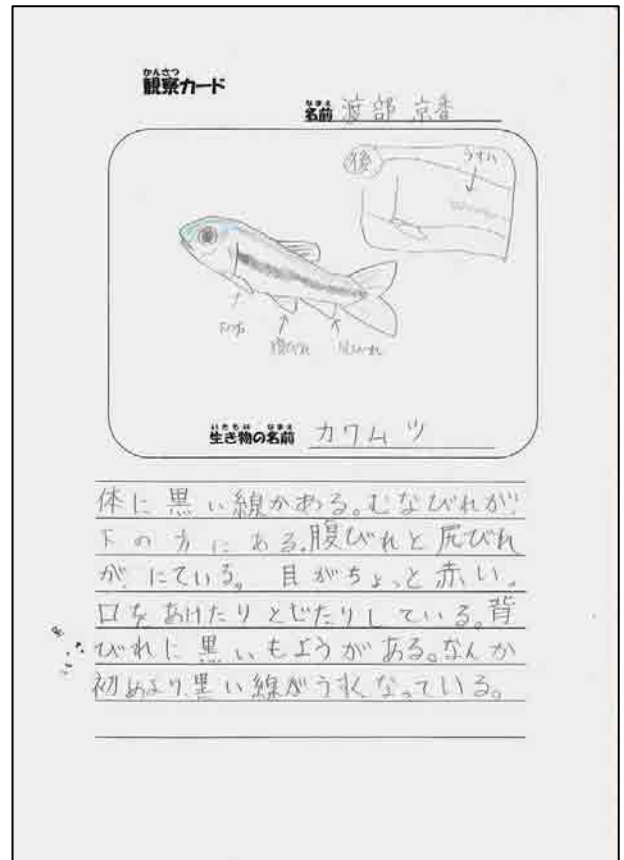 かんさつ
観察カード
なまえ
名前 渡部 京香
後
うすい
腹びれ 尻びれ
いきもの なまえ
生き物の名前 カワムツ
体に黒い線がある。むなびれが
下の方にある。腹びれと尻びれ
が にている。 目がちょっと赤い。
口をあけたりとじたりしている。背
びれに黒いもようがある。なんか
初めより、黒い線がうすくなっている。